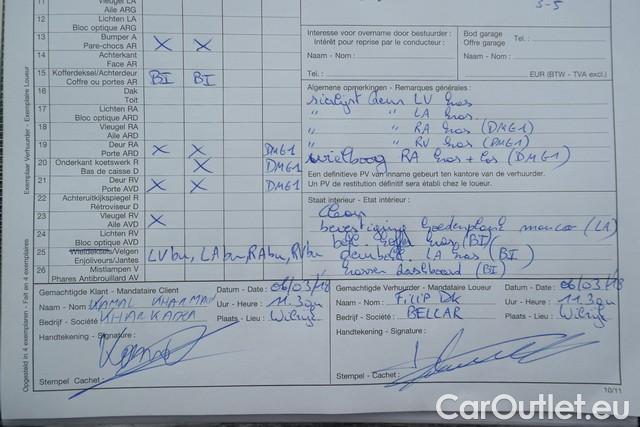 11 Vleugel LA
Aile ARG
12 Lichten LA
Bloc optique ARG
13 Bumper A
Pare-chocs AR X X
14 Achterkant
Face AR
15 Kofferdeksel/Achterdeur
Coffre ou portes AR BI BI
16 Dak
Toit
17 Lichten RA
Bloc optique ARD
18 Vleugel RA
Aile ARD
19 Deur RA
Porte ARD X X DMG1
20 Onderkant koetswerk R
Bas de caisse D X DMG1
21 Deur RV
Porte AVD X X DMG1
22 Achteruitkijkspiegel R
Rétroviseur D
23 Vleugel RV
Aile AVD X
24 Lichten RV
Bloc optique AVD
25 Wieldeksels/Velgen
Enjoliveurs/Jantes LVbu, LAbu, RAbu, RVbu
26 Mistlampen V
Phares Antibrouillard AV
3-5
Interesse voor overname door bestuurder :
Intérêt pour reprise par le conducteur :
Naam - Nom :
Tel. :
Bod garage
Offre garage Tel. :
Naam - Nom :
EUR (BTW - TVA excl.)
Algemene opmerkingen - Remarques générales :
sierlijst deur LV kras
" " LA kras
" " RA kras (DMG1)
" " RV kras (DMG1)
wielboog RA kras + (DMG1)
Een definitieve PV van inname gebeurt ten kantore van de verhuurder.
Un PV de restitution définitif sera établi chez le loueur.
Staat interieur - Etat interieur :
Clean
bevestiging hoedenplank (LA)
koffer kras (BI)
LA kras (BI)
krassen dashboard (BI)
Exemplaire Verhuurder - Exemplaire Loueur
Opgesteld in 4 exemplaren - Fait en 4 exemplaires
Gemachtigde Klant - Mandataire Client Datum - Date : 06/03/18
Naam - Nom : KAMAL KHARMAN Uur - Heure : 11.30
Bedrijf - Société : KHARKADA Plaats - Lieu : Wilrijk
Handtekening - Signature :
Stempel - Cachet :
Gemachtigde Verhuurder - Mandataire Loueur Datum - Date : 06/03/18
Naam - Nom : Filip Uur - Heure : 11.30
Bedrijf - Société : BELLAR Plaats - Lieu : Wilrijk
Handtekening - Signature :
Stempel - Cachet :
10/11
CarOutlet.eu